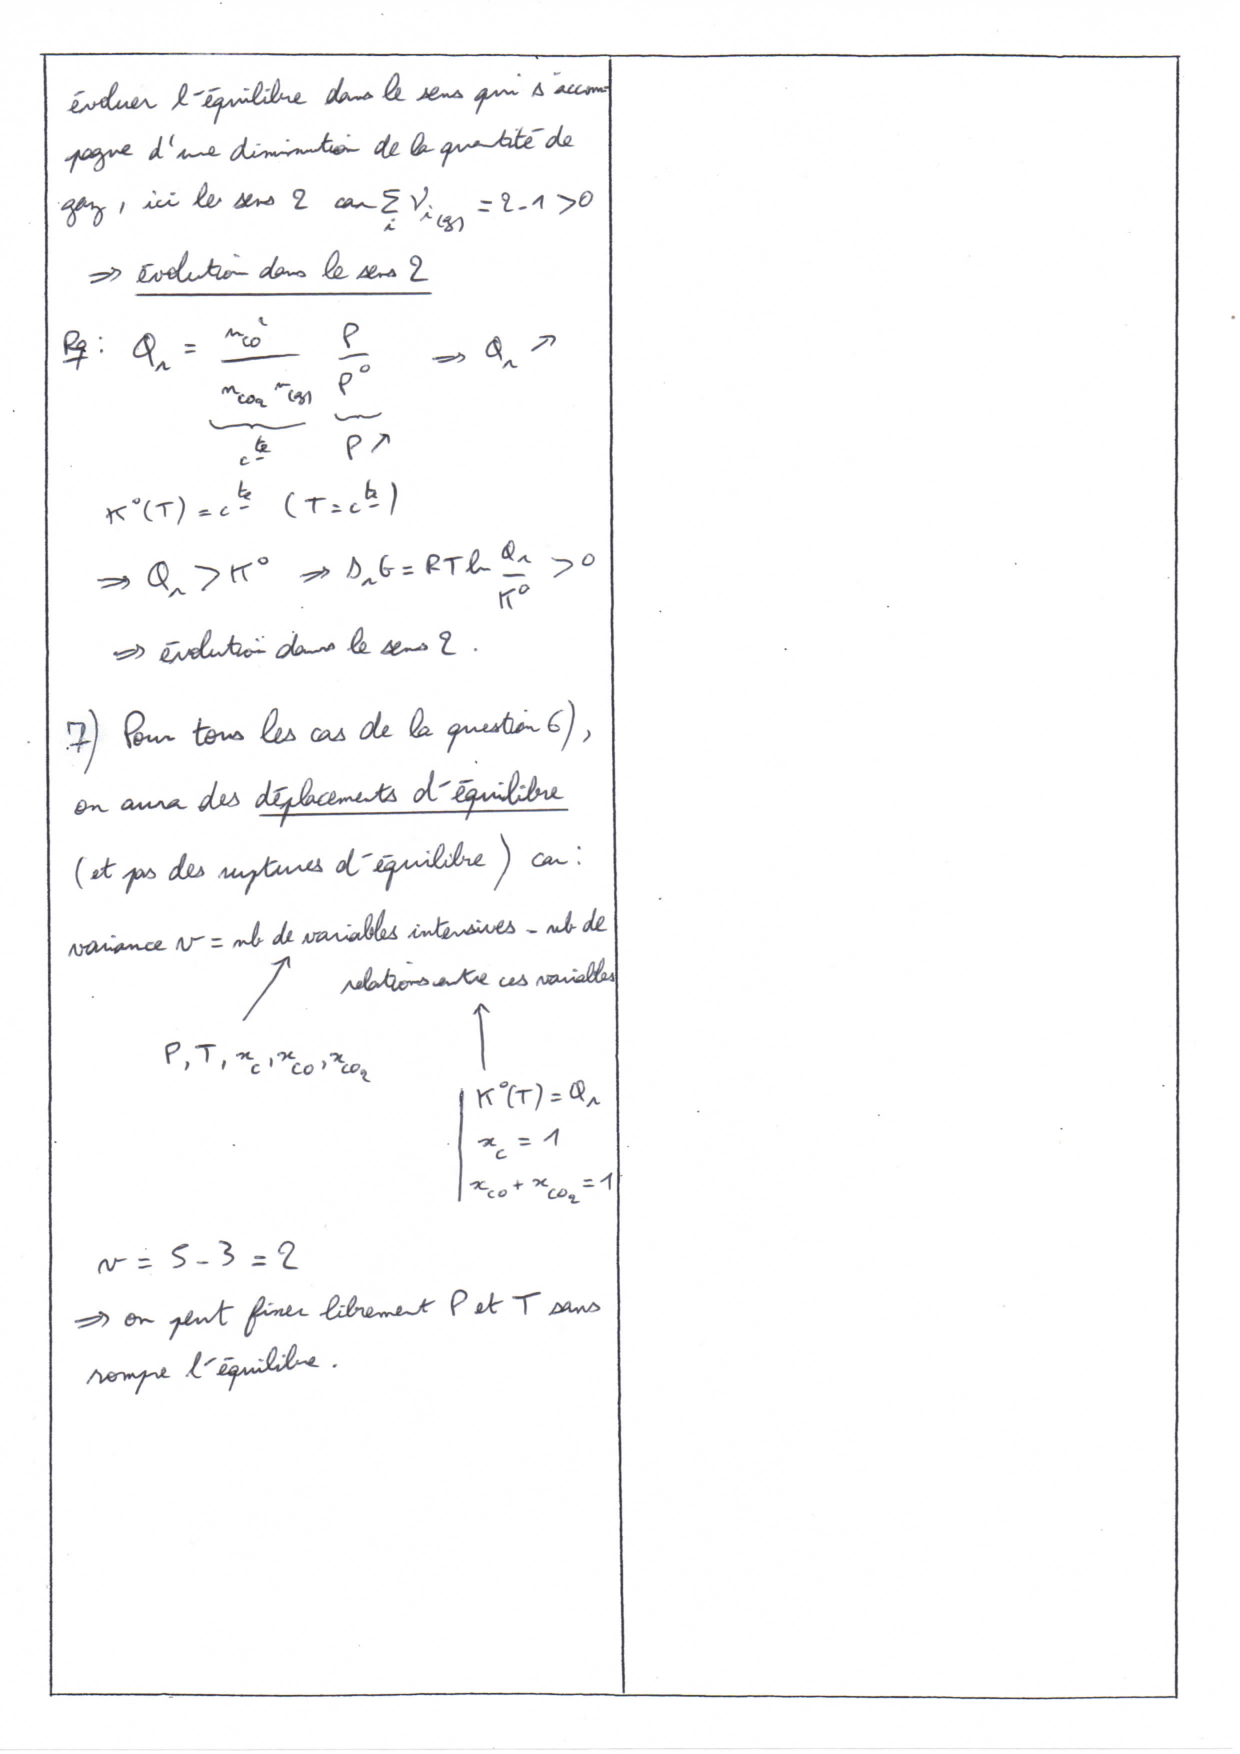 évoluer l'équilibre dans le sens qui s'accom-
pagne d'une diminution de la quantité de
gaz, ici le sens 2 car Σ_i ν_i(g) = 2-1 >0
⇒ évolution dans le sens 2
Rq : Q_r = n_CO² / (n_CO₂ n_(g)) P/P° ⇒ Q_r ↗
c^te P ↗
K°(T) = c^te (T = c^te)
⇒ Q_r > K° ⇒ Δ_rG = RT ln Q_r/K° > 0
⇒ évolution dans le sens 2.
7) Pour tous les cas de la question 6),
on aura des déplacements d'équilibre
(et pas des ruptures d'équilibre) car :
variance v = nb de variables intensives - nb de
relations entre ces variables
P, T, x_C, x_CO, x_CO₂
K°(T) = Q_r
x_C = 1
x_CO + x_CO₂ = 1
v = 5 - 3 = 2
⇒ on peut fixer librement P et T sans
rompre l'équilibre.